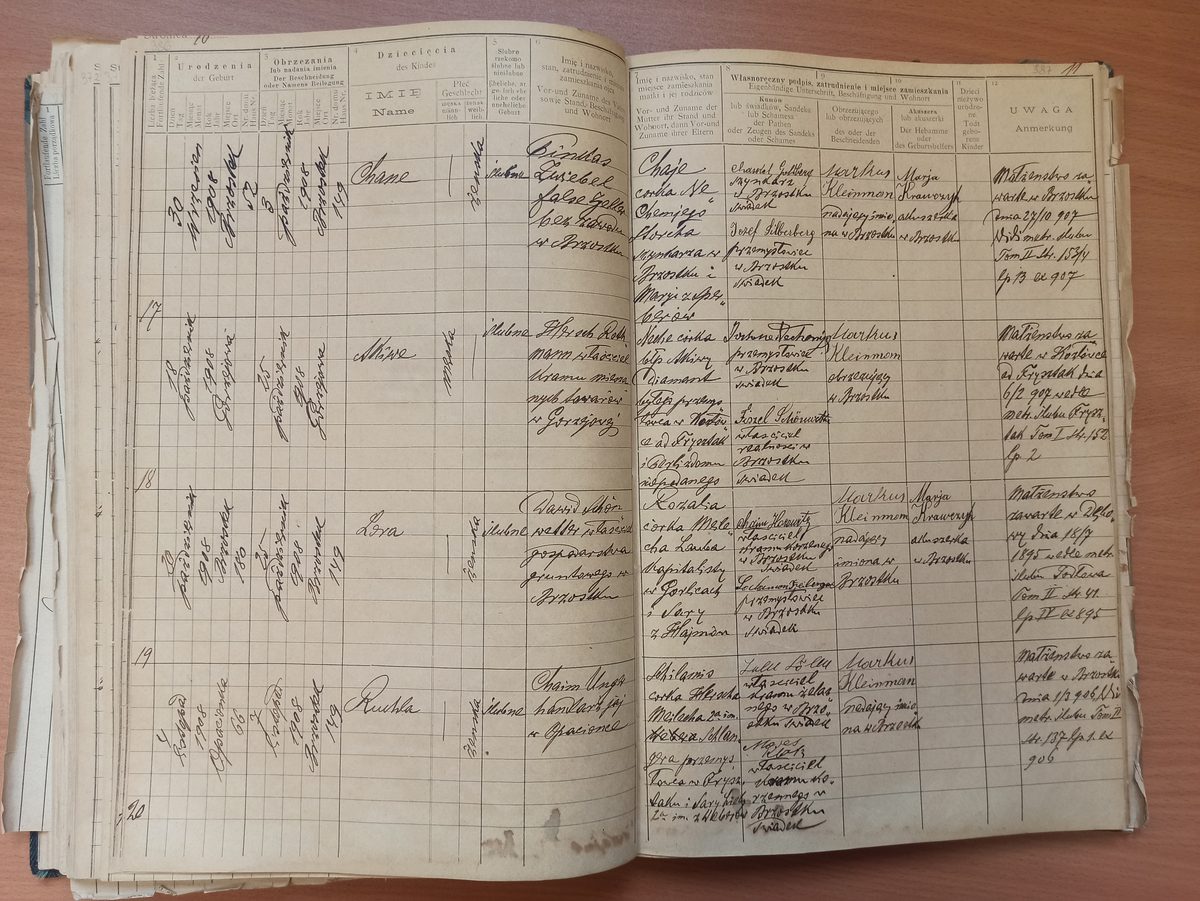 Stronica 10
1
Liczba rzędka
Fortlaufende Zahl
2
Urodzenia
der Geburt
Dzień
Tag
Miesiąc
Monat
Rok
Jahr
Miejsce
Ort
Nr. domu
Haus Nr.
3
Obrzezania
lub nadania imienia
Der Beschneidung
oder Namens Beilegung
Dzień
Tag
Miesiąc
Monat
Rok
Jahr
Miejsce
Ort
Nr. domu
Haus Nr.
4
Dziecięcia
des Kindes
IMIĘ
Name
Płeć
Geschlecht
męska
männlich
żeńska
weiblich
5
Ślubne
rzekomo
ślubne lub
nieślubne
6
Imię i nazwisko,
stan, zatrudnienie i miejsce
zamieszkania ojca
Vor- und Zuname des Vaters
sowie Stand, Beschäftigung
und Wohnort
17
30
Wrzesień
1908
Brzostek
52
3
październik
1908
Brzostek
149
Chane
żeńska
ślubne
Pinkas
Zwiebel
false Geller
bez zawodu
w Brzostku
18
18
październik
1908
Gorzejowa
25
październik
1908
Gorzejowa
Akiwe
męska
ślubne
Hersch Roth
mann właściciel
kramu miesza
nych towarów
w Gorzejowej
19
październik
1908
Brzostek
180
25
październik
1908
Brzostek
149
żeńska
ślubne
Dawid Schön
wetter właściciel
gospodarstwa
gruntowego w
Brzostku
20
4
Listopad
1908
Opacionka
66
7
Listopad
1908
Brzostek
149
Ruchla
żeńska
ślubne
Chaim Unger
handlarz jaj
w Opacionce
11
7
Imię i nazwisko, stan
miejsce zamieszkania
matki i jej rodziców
Vor- und Zuname der
Mutter ihr Stand und
Wohnort, dann Vor- und
Zuname ihrer Eltern
8
Własnoręczny podpis, zatrudnienie i miejsce zamieszkania
Eigenhändige Unterschrift, Beschäftigung und Wohnort
Kumów
lub świadków, Sandeka
lub Schamesa
der Pathen
oder Zeugen des Sandeks
oder Schames
9
Obrzezującego
lub obrzezujących
des oder der
Beschneidenden
10
Akuszera
lub akuszerki
Der Hebamme
oder
des Geburtshelfers
11
Dzieci
nieżywo
urodzone
Todt
geborene
Kinder
12
UWAGA
Anmerkung
Chaje
córka Ne-
chemjego
Storcha
szynkarza w
Brzostku i
Marji z Sper-
berów
Goldberg
szynkarz
w Brzostku
świadek
Josef Silberberg
przemysłowiec
w Brzostku
świadek
Markus
Kleinman
nadający imio-
na w Brzostku
Marja
Krawczyk
akuszerka
w Brzostku
Małżeństwo za-
warte w Brzostku
dnia 27/10 907
Widi metr. ślubu
Tom II str. 152/4
lp 13 ex 907
Neche córka
błp. Akiwy
Diamant
byłego przemy
słowca w Kozłów
ce ad Frysztak
i Perli z domu
niepodanego
przemysłowiec
w Brzostku
świadek
Fiszel Schönwetter
właściciel
realności w
Brzostku
świadek
Markus
Kleinmann
obrzezujący
w Brzostku
Małżeństwo za-
warte w Kozłówce
ad Frysztak dnia
6/2 907 wedle
metr. ślubu Frysz-
tak Tom I str. 152
lp. 2
Rozalia
córka Mele-
cha Landa
kapitalisty
w Gorlicach
i Sary
z Hajmów
Chaim Horowitz
właściciel
kramu korzennego
w Brzostku
świadek
przemysłowiec
w Brzostku
świadek
Markus
Kleinmann
nadający
imiona w
Brzostku
Marja
Krawczyk
akuszerka
w Brzostku
Małżeństwo
zawarte w Dębo-
wy dnia 18/7
1895 wedle metr.
ślubu Jodłowa
Tom II str. 41
lp IV ex 895
córka Herscha
przemys-
łowca w Frysz-
taku i Sary
właściciel
kramu żelaz-
nego w Brzo-
stku świadek
Mojżes
właściciel
kramu ko-
rzennego w
Brzostku
świadek
Markus
Kleinman
nadający imio
na w Brzostku
Małżeństwo za-
warte w Brzostku
dnia 1/3 906 Widi
metr. ślubu Tom II
str. 137 lp. 1. ex
906